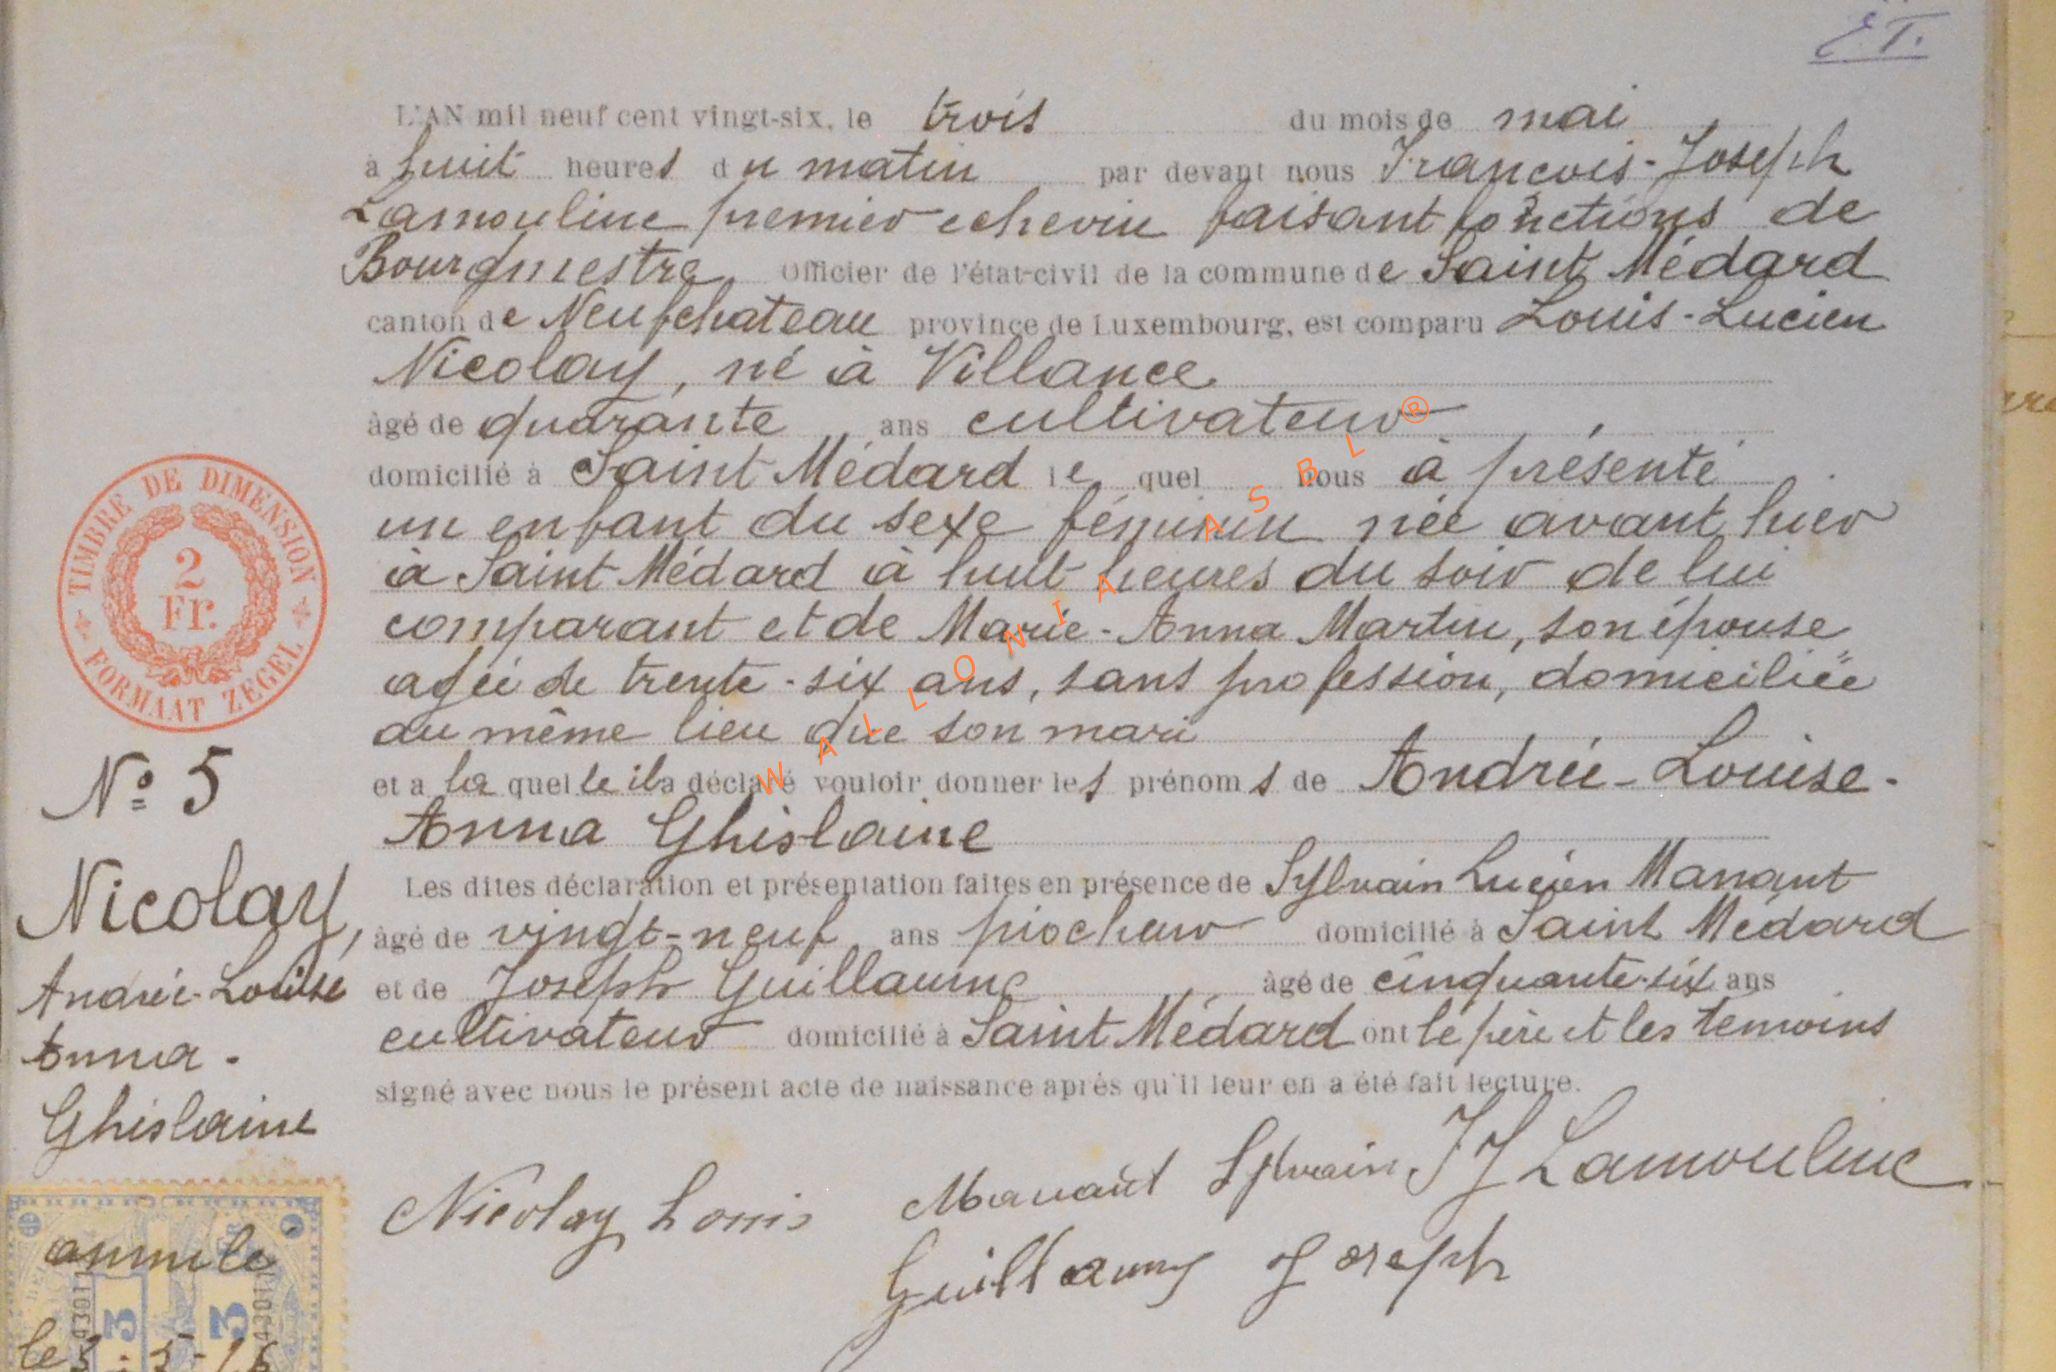 E.T.
L'AN mil neuf cent vingt-six, le trois du mois de mai
à huit heures du matin par devant nous François-Joseph
Lamouline premier echevin faisant fonctions de
Bourgmestre Officier de l'état-civil de la commune de Saint Médard
canton de Neufchateau province de Luxembourg, est comparu Louis-Lucien
Nicolay, né à Villance
âgé de quarante ans cultivateur
domicilié à Saint Médard le quel nous à présenté
un enfant du sexe féminin née avant hier
à Saint Médard à huit heures du soir de lui
comparant et de Marie-Anna Martin, son épouse
agée de trente-six ans, sans profession, domiciliée
au même lieu que son mari
et a la quelle il a déclaré vouloir donner les prénoms de Andrée-Louise-
Anna Ghislaine
Les dites déclaration et présentation faites en présence de Sylvain Lucien Manant
âgé de vingt-neuf ans piocheur domicilié à Saint Médard
et de Joseph Guillaume âgé de cinquante-six ans
cultivateur domicilié à Saint Médard ont le père et les témoins
signé avec nous le présent acte de naissance après qu'il leur en a été fait lecture.
Nicolay Louis Manant Sylvain FJ Lamouline
Guillaume Joseph
TIMBRE DE DIMENSION
2
Fr.
FORMAAT ZEGEL
N° 5
Nicolay,
Andrée-Louise
Anna-
Ghislaine
annulé
3 3
le 3-5-26
WALLONIA ASBL ®